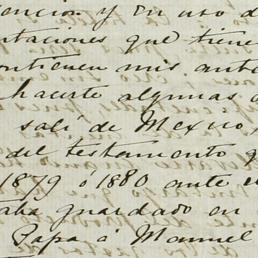 encion y en uso d
taciones que tiene
ontienen mis ante
hacerte algunas
salí de Mexico,
del testamento
1879 ó 1880 ante
taba guardado en
Papa á Manuel